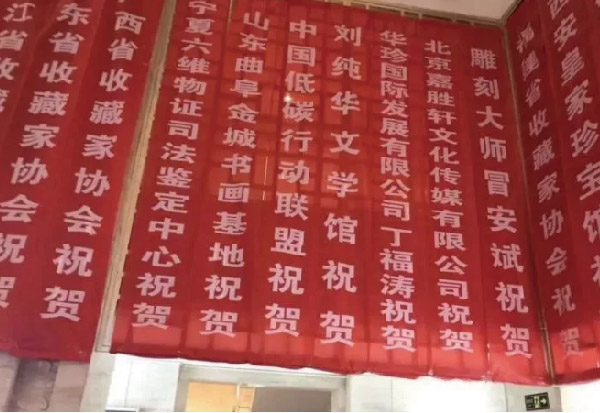 江省收藏家协会祝贺
东省收藏家协会祝贺
西省收藏家协会祝贺
宁夏六维物证司法鉴定中心祝贺
山东曲阜金城书画基地祝贺
中国低碳行动联盟祝贺
刘纯华文学馆祝贺
华珍国际发展有限公司丁福涛祝贺
北京嘉胜轩文化传媒有限公司祝贺
雕刻大师冒安斌祝贺
福建省收藏家协会祝贺
西安皇家珍宝馆祝